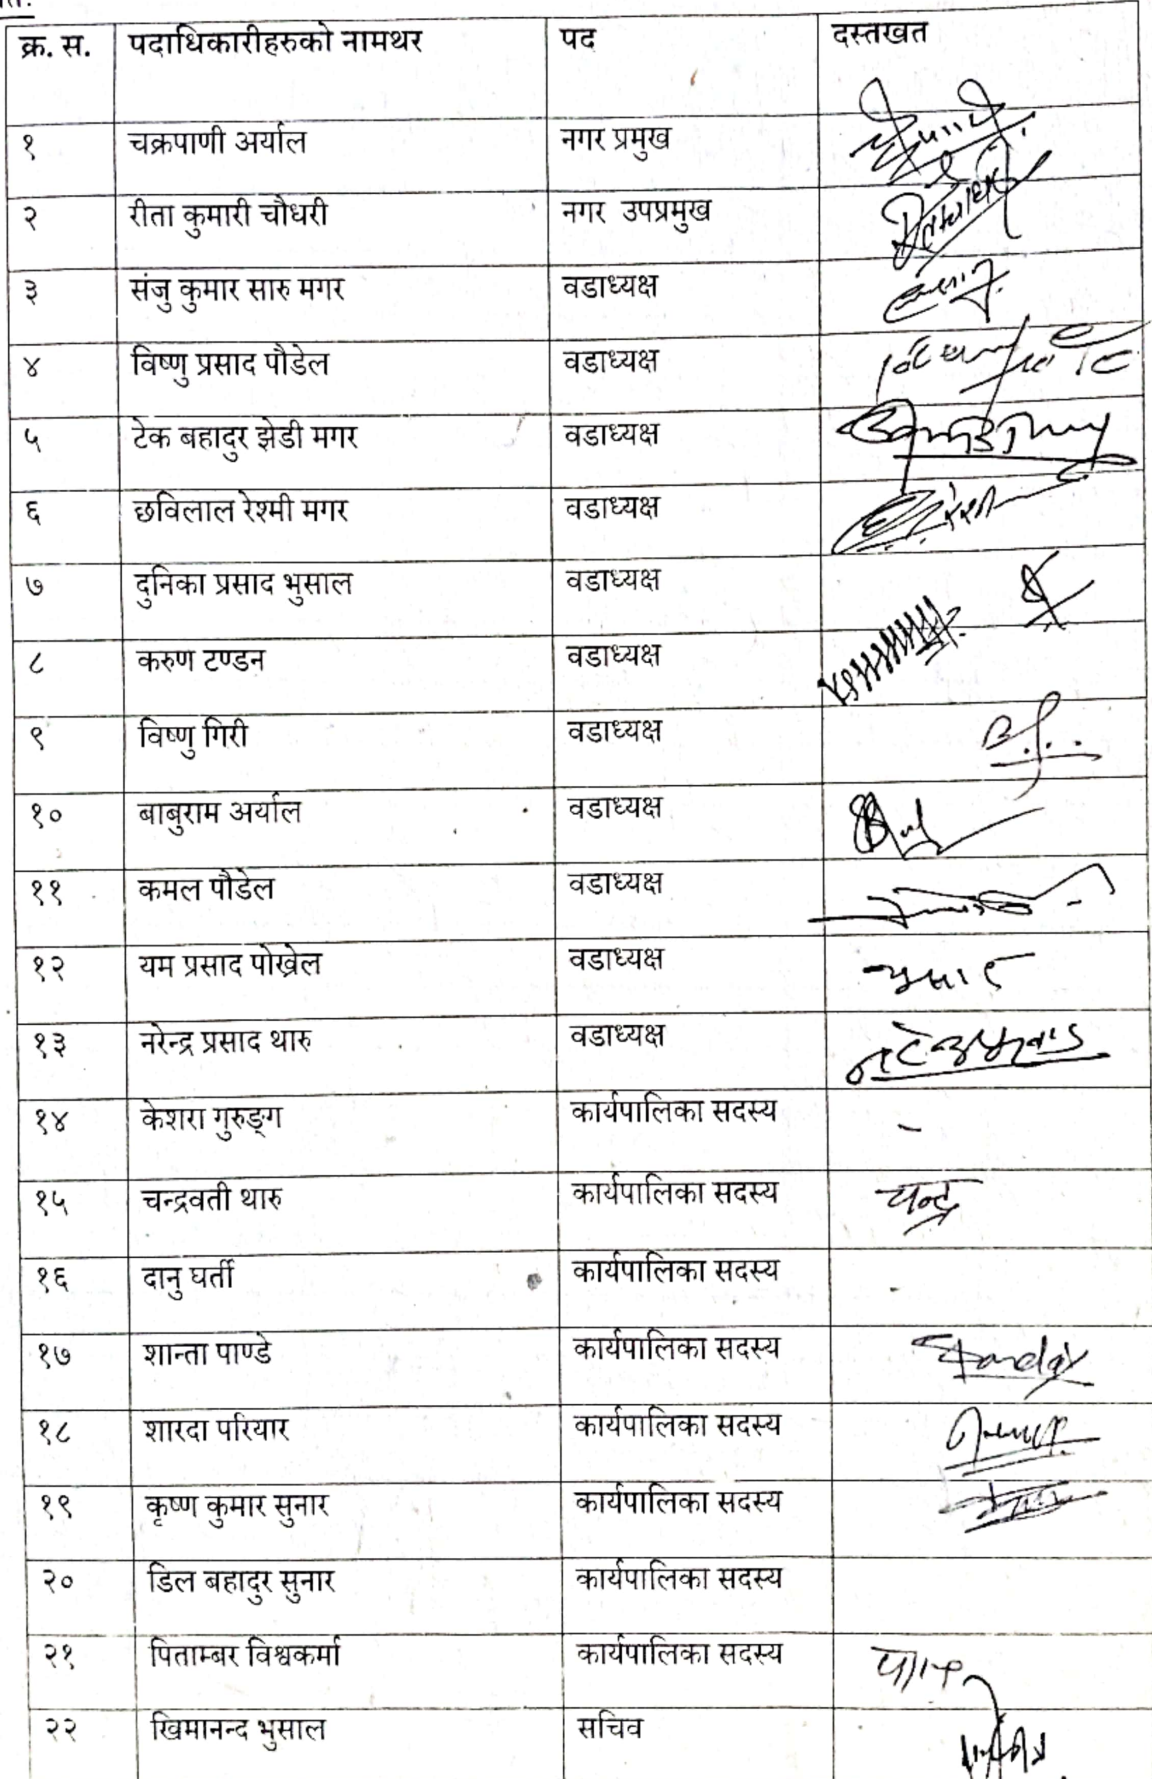 क्र. स. पदाधिकारीहरुको नामथर पद दस्तखत
१ चक्रपाणी अर्याल नगर प्रमुख
२ रीता कुमारी चौधरी नगर उपप्रमुख
३ संजु कुमार सारु मगर वडाध्यक्ष
४ विष्णु प्रसाद पौडेल वडाध्यक्ष
५ टेक बहादुर झेडी मगर वडाध्यक्ष
६ छविलाल रेश्मी मगर वडाध्यक्ष
७ दुनिका प्रसाद भुसाल वडाध्यक्ष
८ करुण टण्डन वडाध्यक्ष
९ विष्णु गिरी वडाध्यक्ष
१० बाबुराम अर्याल वडाध्यक्ष
११ कमल पौडेल वडाध्यक्ष
१२ यम प्रसाद पोख्रेल वडाध्यक्ष
१३ नरेन्द्र प्रसाद थारु वडाध्यक्ष
१४ केशरा गुरुङ्ग कार्यपालिका सदस्य -
१५ चन्द्रवती थारु कार्यपालिका सदस्य चन्द्र
१६ दानु घर्ती कार्यपालिका सदस्य
१७ शान्ता पाण्डे कार्यपालिका सदस्य
१८ शारदा परियार कार्यपालिका सदस्य
१९ कृष्ण कुमार सुनार कार्यपालिका सदस्य
२० डिल बहादुर सुनार कार्यपालिका सदस्य
२१ पिताम्बर विश्वकर्मा कार्यपालिका सदस्य
२२ खिमानन्द भुसाल सचिव